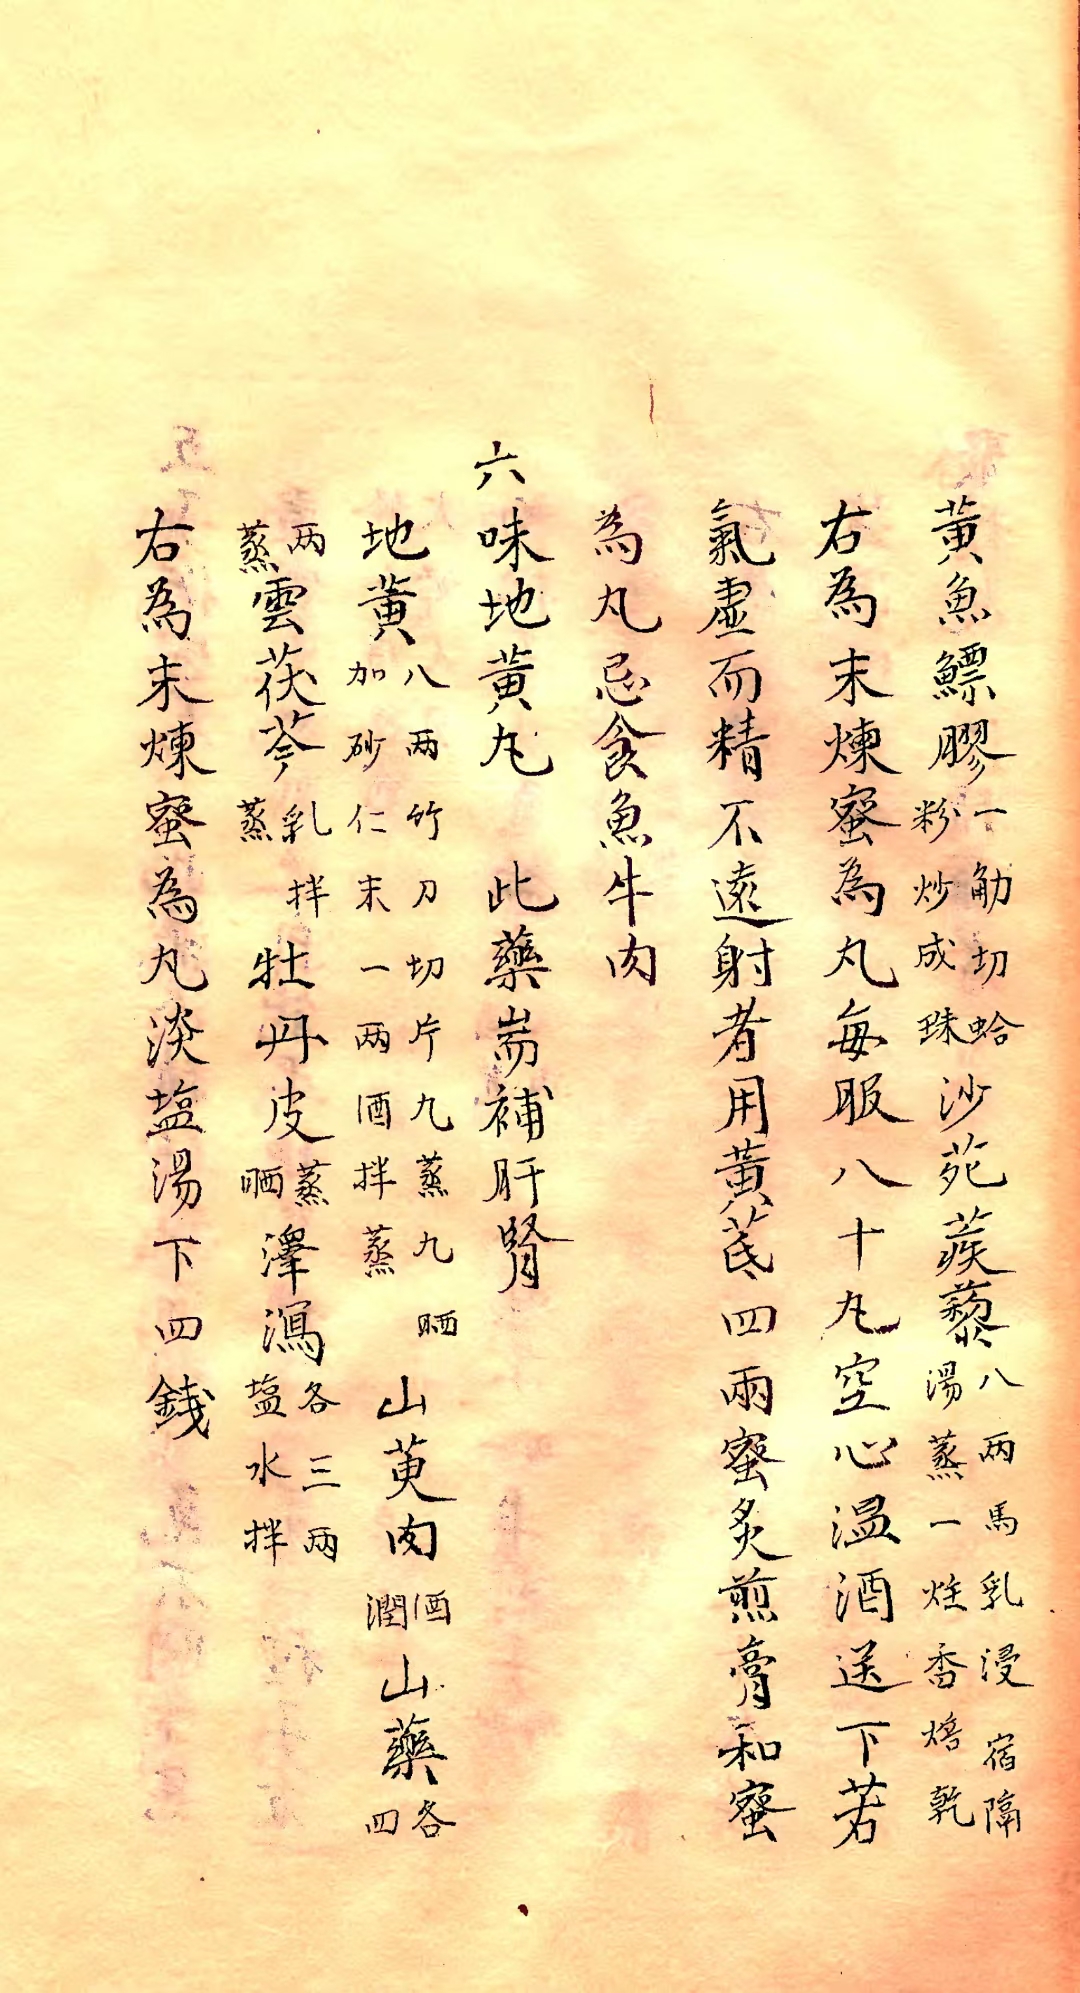 黃魚鰾膠一觔切蛤粉炒成珠沙苑蒺藜八两馬乳浸宿隔湯蒸一炷香焙乾
右為末煉蜜為丸每服八十丸空心溫酒送下若
氣虛而精不遠射者用黃芪四兩蜜炙煎膏和蜜
為丸忌食魚牛肉
六味地黃丸 此藥耑補肝腎
地黃八两竹刀切片九蒸九晒加砂仁末一两酒拌蒸山萸肉酒潤山藥各四
两蒸雲茯苓乳拌蒸牡丹皮蒸晒澤瀉各三两塩水拌
右為末煉蜜為丸淡塩湯下四錢